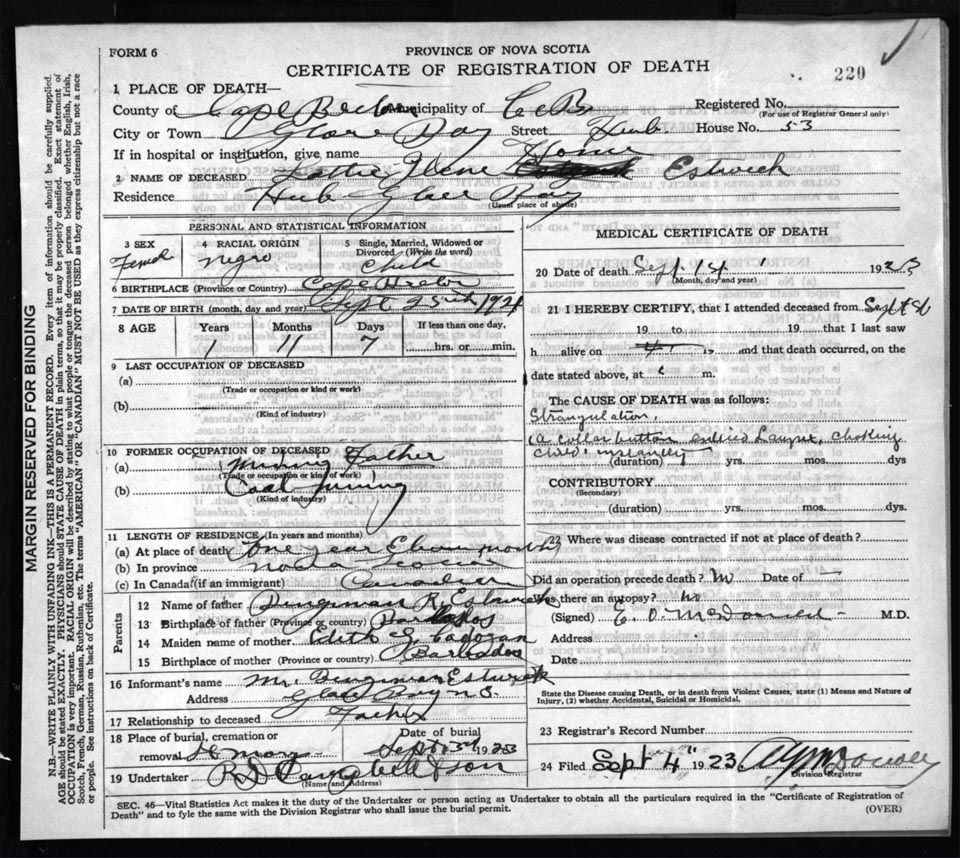 FORM 6
PROVINCE OF NOVA SCOTIA
CERTIFICATE OF REGISTRATION OF DEATH
220
1 PLACE OF DEATH—
County of Cape Breton Municipality of C. B. Registered No.
(For use of Registrar General only)
City or Town Glace Bay Street Hub House No. 53
If in hospital or institution, give name Home
2 NAME OF DECEASED Ilene Estwick
Residence Hub Glace Bay
(Usual place of abode)
PERSONAL AND STATISTICAL INFORMATION
3 SEX 4 RACIAL ORIGIN 5 Single, Married, Widowed or Divorced (Write the word)
Female Negro Child
6 BIRTHPLACE (Province or Country) Cape Breton
7 DATE OF BIRTH (month, day and year) Sept 25th 1921
8 AGE Years Months Days If less than one day,
1 11 7 hrs. or min.
9 LAST OCCUPATION OF DECEASED
(a)
(Trade or occupation or kind or work)
(b)
(Kind of industry)
10 FORMER OCCUPATION OF DECEASED Father
(a) Mining
(Trade or occupation or kind of work)
(b) Coal Mining
(Kind of industry)
11 LENGTH OF RESIDENCE (In years and months)
(a) At place of death One year Eleven months
(b) In province Nova Scotia
(c) In Canada (if an immigrant) Canadian
Parents
12 Name of father R. Estwick
13 Birthplace of father (Province or country) Barbados
14 Maiden name of mother Edith
15 Birthplace of mother (Province or country) Barbados
16 Informant's name Mr. Estwick
Address Glace Bay N.S.
17 Relationship to deceased Father
18 Place of burial, cremation or removal Date of burial
Sept 1923
19 Undertaker Son
(Name and Address)
MEDICAL CERTIFICATE OF DEATH
20 Date of death Sept. 1923
(Month, day and year)
21 I HEREBY CERTIFY, that I attended deceased from Sept
19 to 19 that I last saw
h alive on 19 and that death occurred, on the
date stated above, at m.
The CAUSE OF DEATH was as follows:
Strangulation.
(a collar button entered Larynx, choking
child instantly
(duration) yrs. mos. dys
CONTRIBUTORY
(Secondary)
(duration) yrs. mos. dys.
22 Where was disease contracted if not at place of death?
Did an operation precede death? No Date of
Was there an autopsy? No
(Signed) E. O. McDonald M.D.
Address
Date
State the Disease causing Death, or in death from Violent Causes, state (1) Means and Nature of
Injury, (2) whether Accidental, Suicidal or Homicidal.
23 Registrar's Record Number
24 Filed Sept 4th 1923
Division Registrar
SEC. 46—Vital Statistics Act makes it the duty of the Undertaker or person acting as Undertaker to obtain all the particulars required in the "Certificate of Registration of
Death" and to fyle the same with the Division Registrar who shall issue the burial permit.
(OVER)
MARGIN RESERVED FOR BINDING
N.B.—WRITE PLAINLY WITH UNFADING INK—THIS IS A PERMANENT RECORD. Every item of information should be carefully supplied.
AGE should be stated EXACTLY. PHYSICIANS should STATE CAUSE OF DEATH in plain terms, so that it may be properly classified. Exact statement of
OCCUPATION is very important. RACIAL ORIGIN will be described by stating to what people or tongue the deceased person belonged whether English, Irish,
Scotch, French, German, Russian, Ruthenian, etc. The terms "AMERICAN" OR "CANADIAN" MUST NOT BE USED as they express citizenship but not a race
or people. See instructions on back of Certificate.